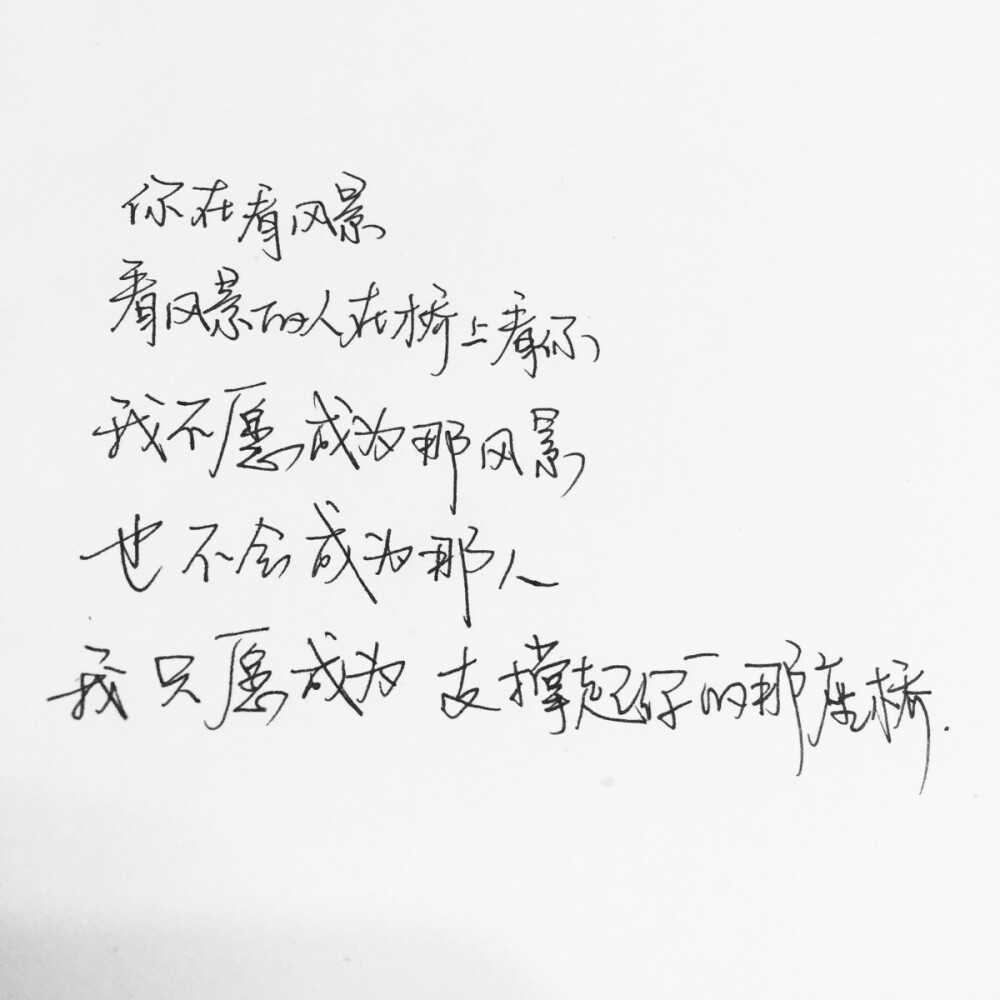 你在看风景
看风景的人在桥上看你
我不愿成为那风景
也不会成为那人
我只愿成为 支撑起你的那座桥.